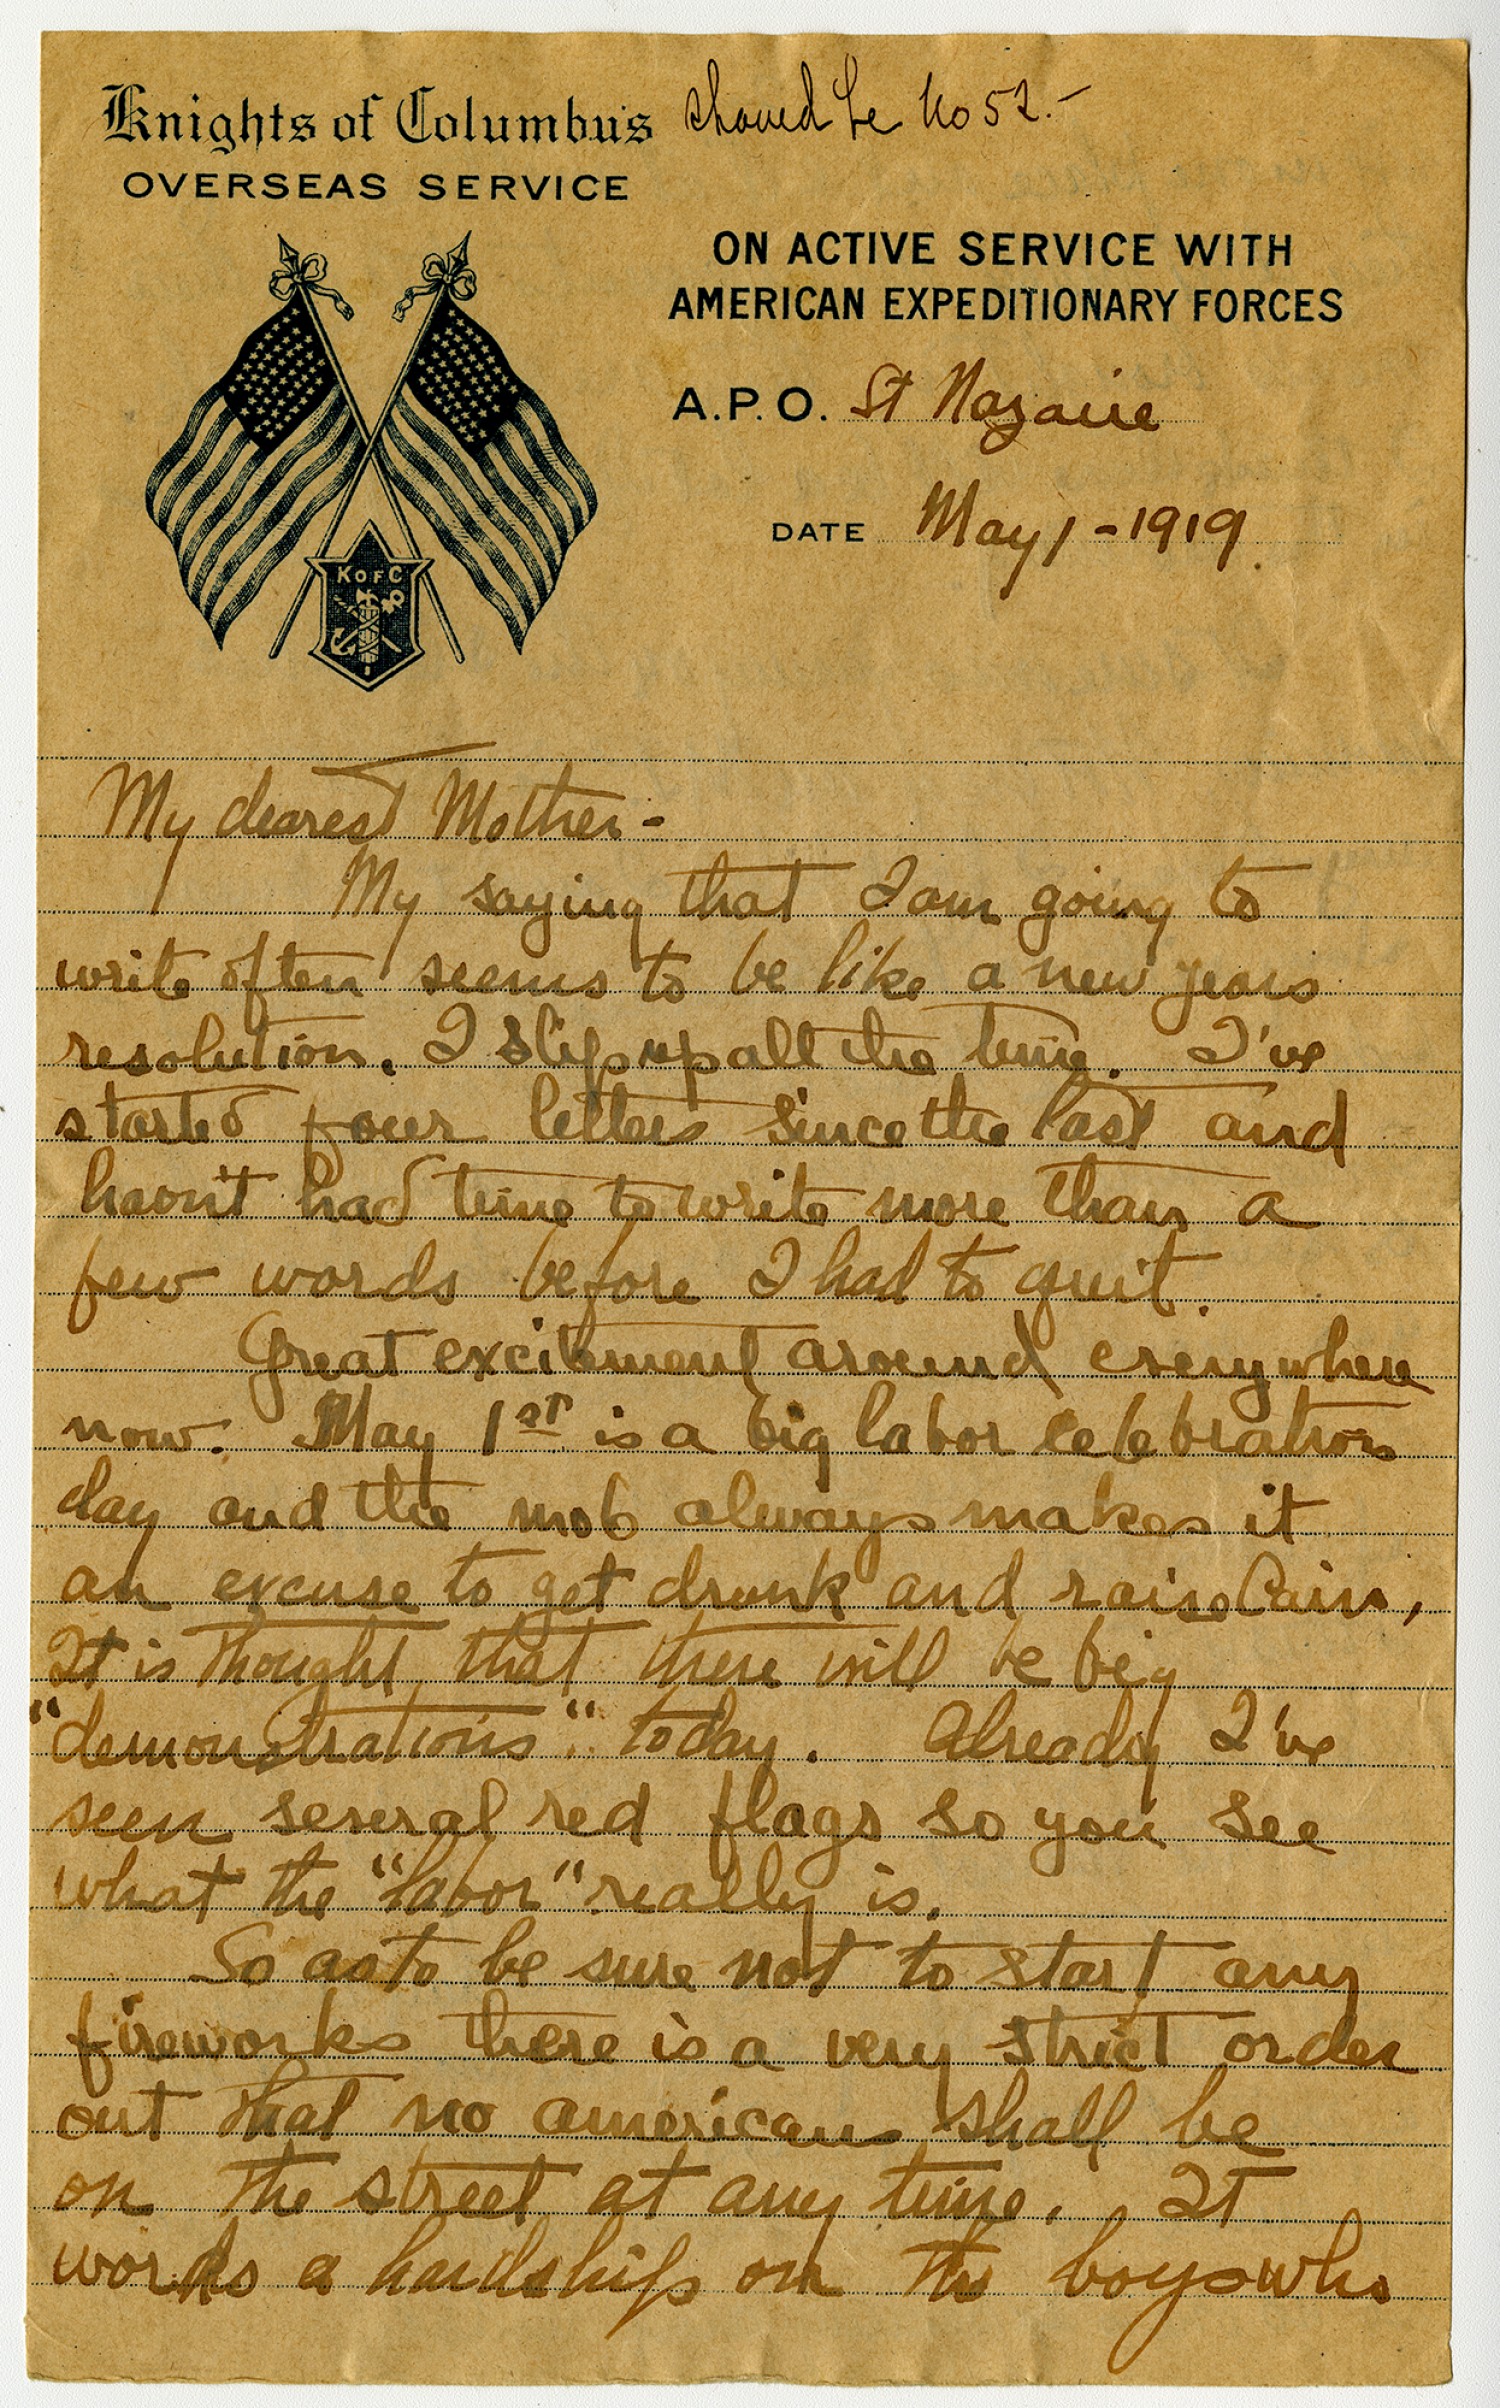 Knights of Columbus should be No 52.-
OVERSEAS SERVICE
ON ACTIVE SERVICE WITH
AMERICAN EXPEDITIONARY FORCES
A.P.O. St Nazaire
DATE May 1 - 1919.
K OF C
My dearest Mother -
My saying that I am going to
write often seems to be like a new years
resolution. I slip up all the time. I've
started four letters since the last and
havn't had time to write more than a
few words before I had to quit.
Great excitement around everywhere
now. May 1st is a big labor celebration
day and the mob always makes it
an excuse to get drunk and raise Cain,
It is thought that there will be big
"demonstrations" today. Already I've
seen several red flags so you see
what the "labor" really is.
So as to be sure not to start any
fireworks there is a very strict order
out that no american shall be
on the street at any time. It
works a hardship on the boys who